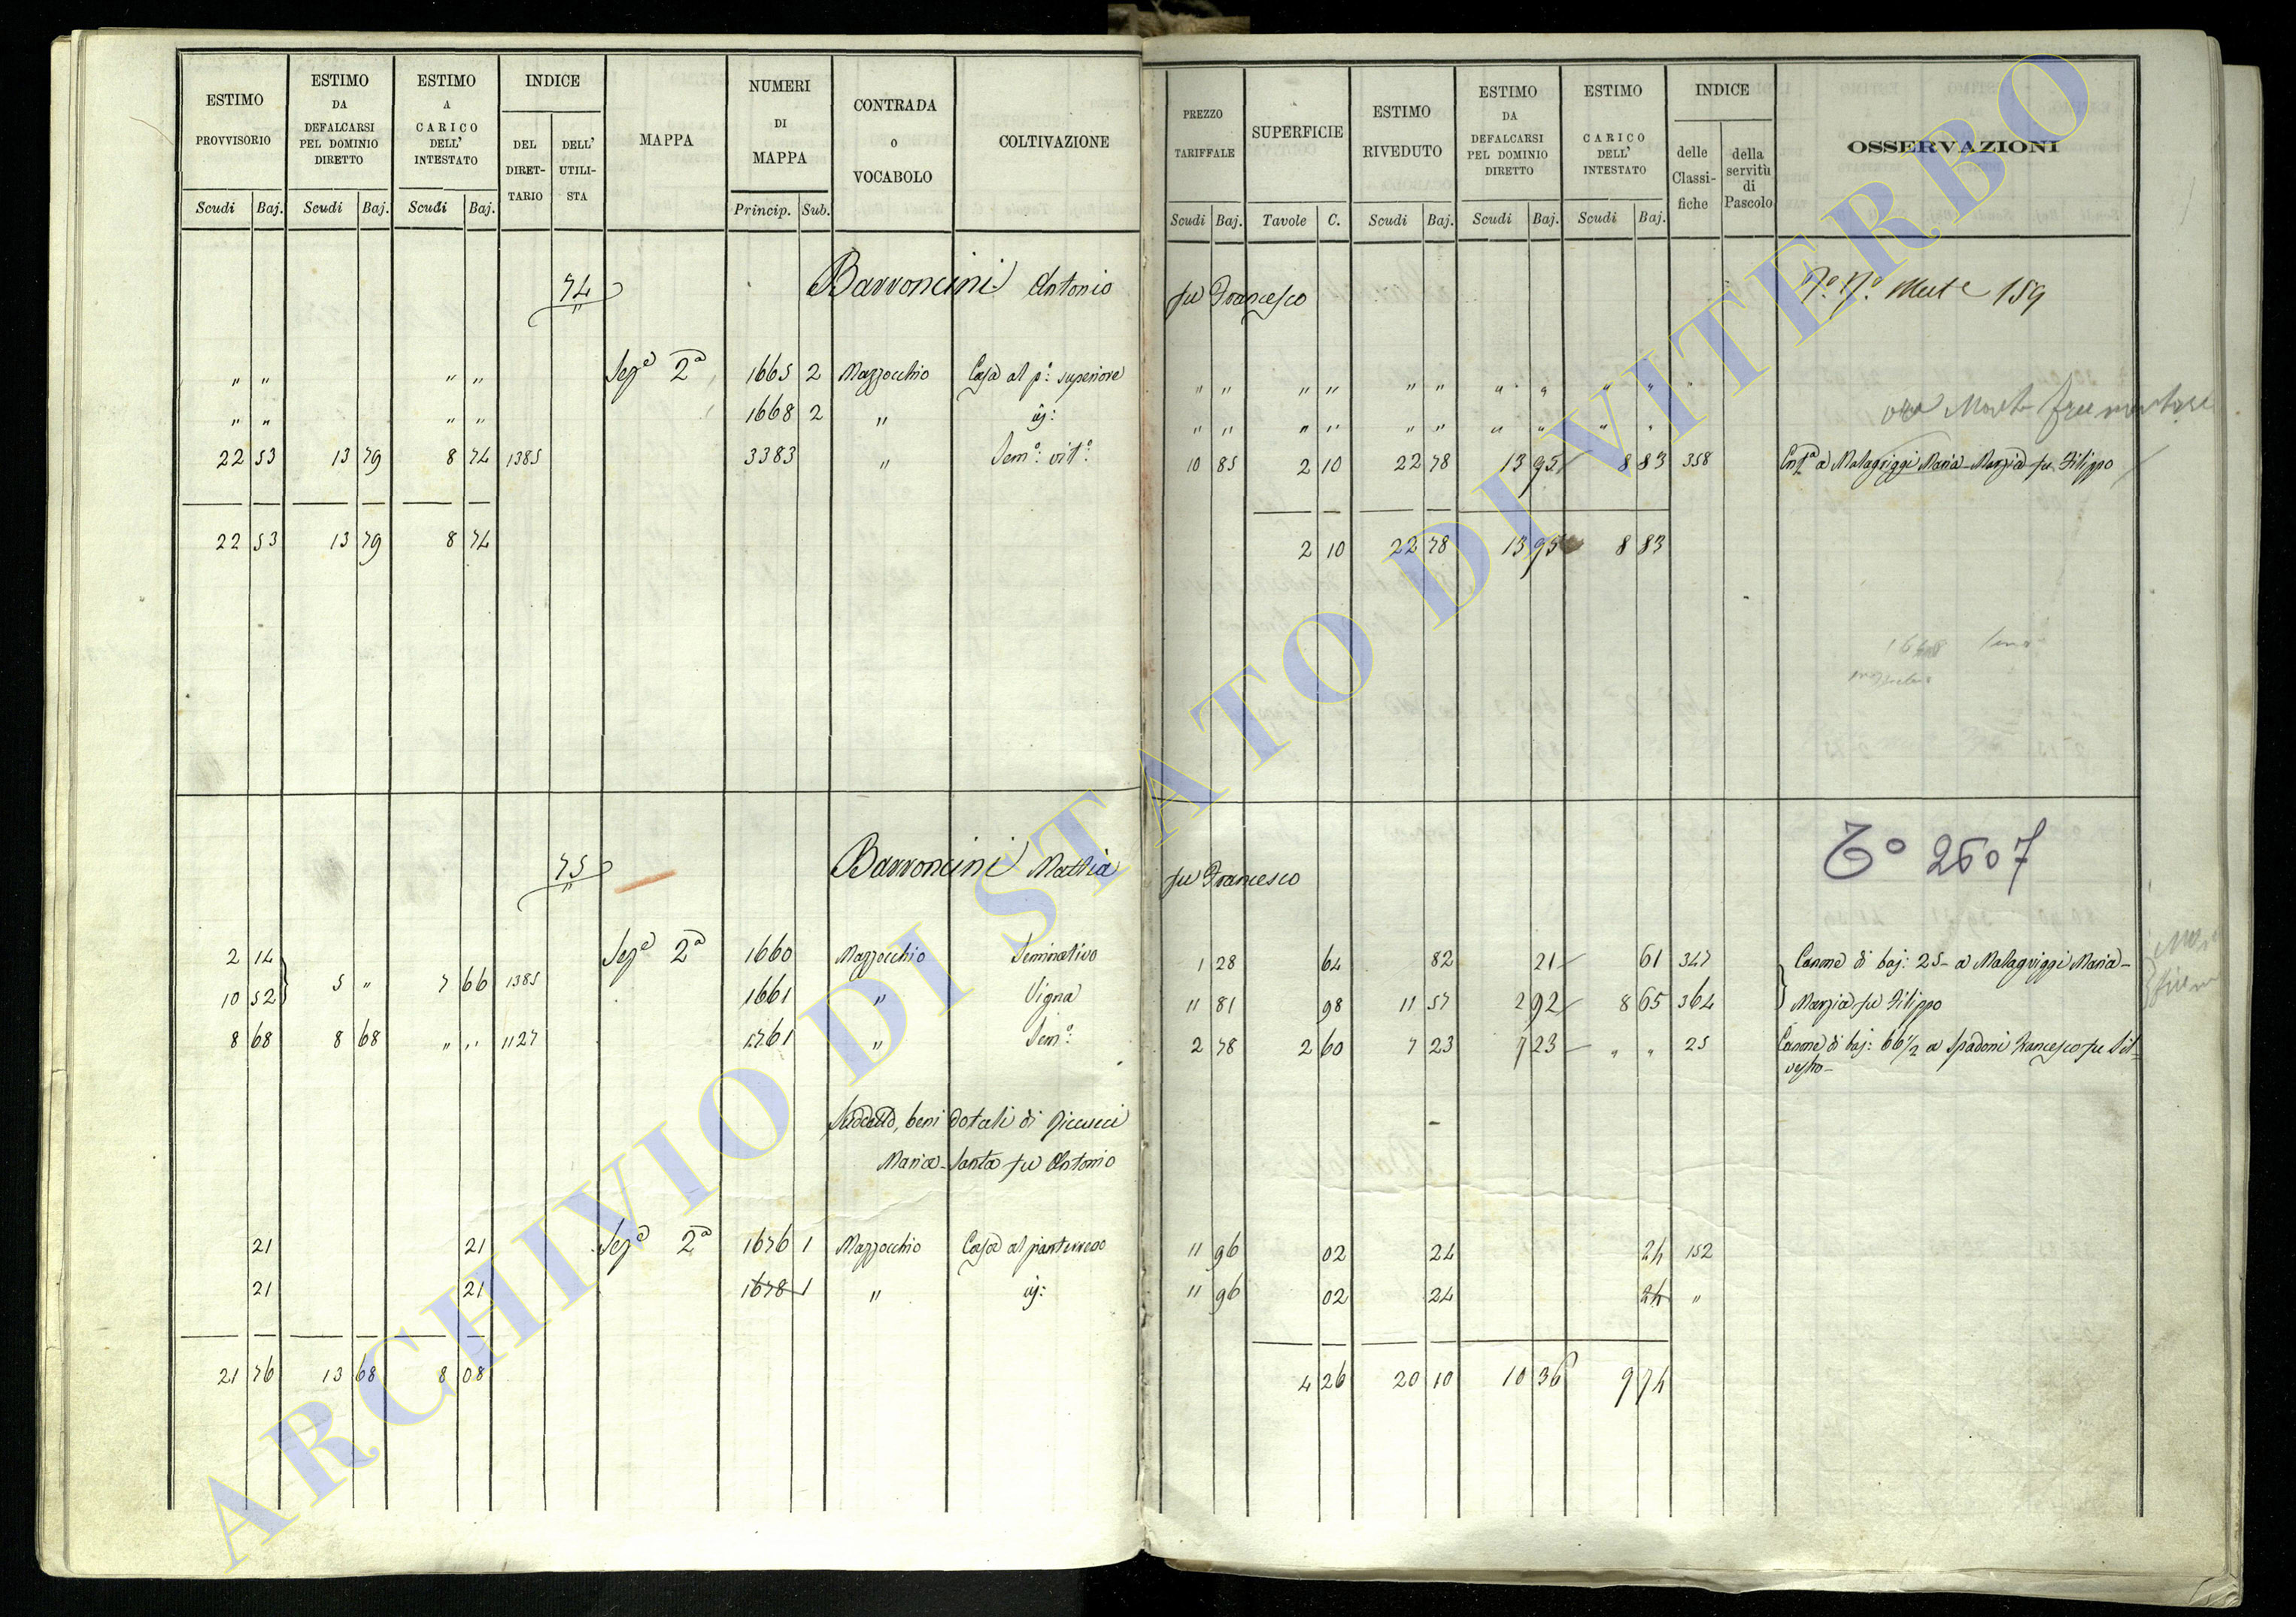 ESTIMO PROVVISORIO | ESTIMO DA DEFALCARSI PEL DOMINIO DIRETTO | ESTIMO A CARICO DELL' INTESTATO | INDICE DEL DIRET-TARIO | DELL' UTILI-STA | MAPPA | NUMERI DI MAPPA | CONTRADA o VOCABOLO | COLTIVAZIONE | PREZZO TARIFFALE | SUPERFICIE | ESTIMO RIVEDUTO | ESTIMO DA DEFALCARSI PEL DOMINIO DIRETTO | ESTIMO CARICO DELL' INTESTATO | INDICE delle Classi-fiche | della servitù di Pascolo | OSSERVAZIONI
Scudi Baj. Scudi Baj. Scudi Baj. Princip. Sub. Scudi Baj. Tavole C. Scudi Baj. Scudi Baj. Scudi Baj.
74 Barroncini Antonio fu Francesco 159
" " " " Sezᵉ 2ª 1665 2 Mazzocchio Casa al p°: superiore " " " " " " " " " "
" " " " 1668 2 " ij: " " " " " " " " " "
ora
22 53 13 79 8 74 1385 3383 " Sem°: vit°: 10 85 2 10 22 78 13 95 8 83 358 Entª a Malagriggi Maria-Marzia fu Filippo
22 53 13 79 8 74 2 10 22 78 13 95 8 83
1668
75 Barroncini Mattia fu Francesco T° 2607
2 14 5 " 7 66 1385 Sezᵉ 2ª 1660 Mazzocchio Seminativo 1 28 64 82 21 61 347 Canone di baj: 25- a Malagriggi Maria-
10 52 1661 " Vigna 11 81 98 11 57 2 92 8 65 364 Marzia fu Filippo
8 68 8 68 " " 1127 1761 " Sem°: 2 78 2 60 7 23 7 23 " " 25 Canone di baj: 66½ a Spadoni Francesco fu Sil-
vestro-
Suddetto, beni dotali di
Maria-Santa fu Antonio
21 21 Sezᵉ 2ª 1676 1 Mazzocchio Casa al pianterreno " 96 02 24 24 152
21 21 1678 1 " ij: " 96 02 24 24 "
21 76 13 68 8 08 4 26 20 10 10 36 9 74
ARCHIVIO DI STATO DI VITERBO